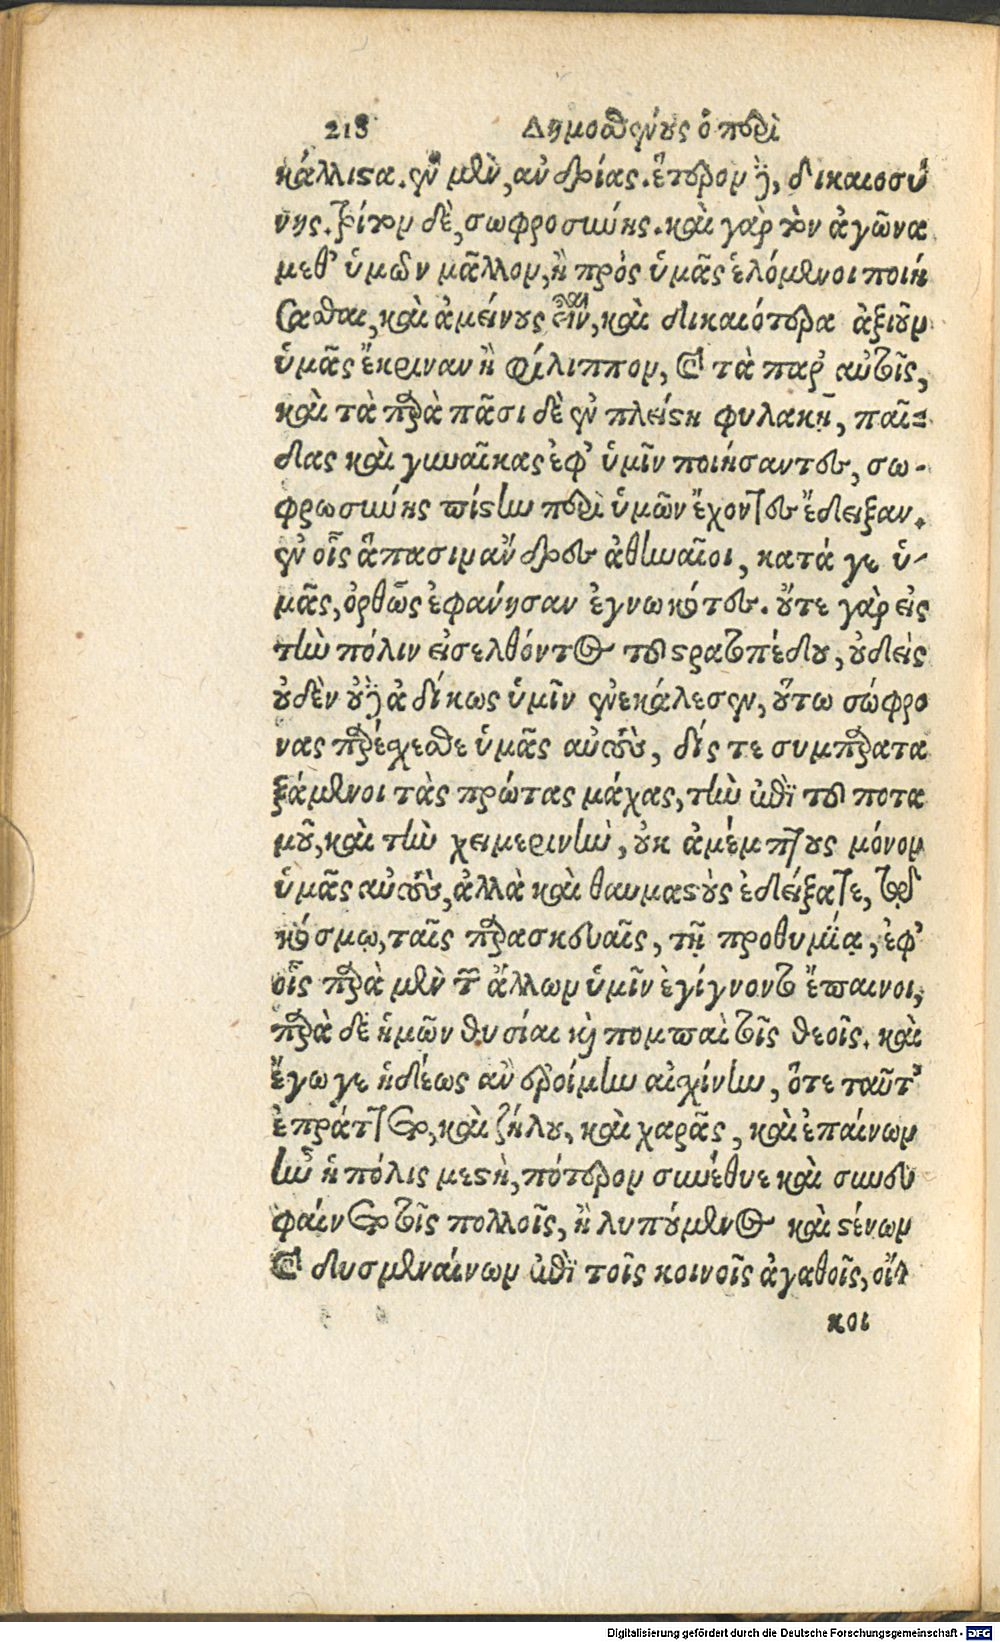 218 Δημοσθένους ὁ περὶ
κάλλιστα. ἓν μὲν, ἀνδρίας. ἕτερον δὲ, δικαιοσύ
νης. τρίτον δὲ, σωφροσύνης. καὶ γὰρ τὸν ἀγῶνα
μεθ' ὑμῶν μᾶλλον, ἢ πρὸς ὑμᾶς ἑλόμενοι ποιή
σασθαι, καὶ ἀμείνους εἶναι, καὶ δικαιότερα ἀξιοῦν
ὑμᾶς ἔκριναν ἢ φίλιππον, καὶ τὰ παρ' αὐτοῖς,
καὶ τὰ παρὰ πᾶσι δὲ ἐν πλείστῃ φυλακῇ, παῖ-
δας καὶ γυναῖκας ἐφ' ὑμῖν ποιήσαντες, σω-
φρωσύνης πίστιν περὶ ὑμῶν ἔχοντες ἔδειξαν.
ἐν οἷς ἅπασιν ἄνδρες ἀθηναῖοι, κατά γε ὑ-
μᾶς, ὀρθῶς ἐφάνησαν ἐγνωκότες. οὔτε γὰρ εἰς
τὴν πόλιν εἰσελθόντος τοῦ στρατοπέδου, οὐδεὶς
οὐδὲν οὐδὲ ἀδίκως ὑμῖν ἐνεκάλεσεν, οὕτω σώφρο
νας παρέχεσθε ὑμᾶς αὐτοὺς, δίς τε συμπαρατα
ξάμενοι τὰς πρώτας μάχας, τὴν ἐπὶ τοῦ ποτα
μοῦ, καὶ τὴν χειμερινὴν, οὐκ ἀμέμπτους μόνον
ὑμᾶς αὐτοὺς, ἀλλὰ καὶ θαυμαστοὺς ἐδείξατε, τῷ
κόσμῳ, ταῖς παρασκευαῖς, τῇ προθυμίᾳ, ἐφ'
οἷς παρὰ μὲν τῶν ἄλλων ὑμῖν ἐγίγνοντο ἔπαινοι,
παρὰ δὲ ἡμῶν θυσίαι καὶ πομπαὶ τοῖς θεοῖς. καὶ
ἔγωγε ἡδέως ἂν ἐροίμην αἰσχίνην, ὅτε ταῦτ'
ἐπράττετο, καὶ ζήλου, καὶ χαρᾶς, καὶ ἐπαίνων
ἦν ἡ πόλις μεστὴ, πότερον συνέθυε καὶ συνευ
φαίνετο τοῖς πολλοῖς, ἢ λυπούμενος καὶ στένων
καὶ δυσμεναίνων ἐπὶ τοῖς κοινοῖς ἀγαθοῖς, οἴ-
κοι
Digitalisierung gefördert durch die Deutsche Forschungsgemeinschaft - DFG